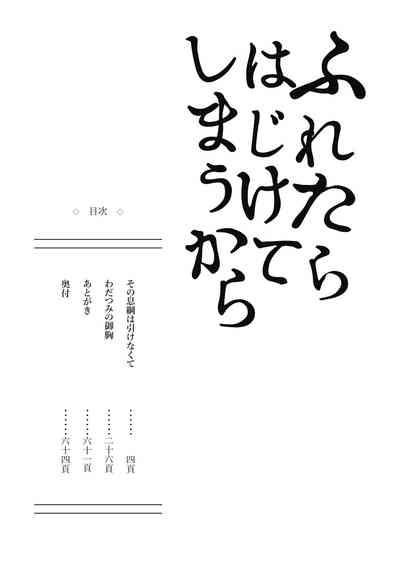 ふれたら
はじけて
しまうから
◇ 目次 ◇
その息綱は引けなくて …… 四頁
わだつみの御胸 …… 二十六頁
あとがき …… 六十一頁
奥付 …… 六十四頁